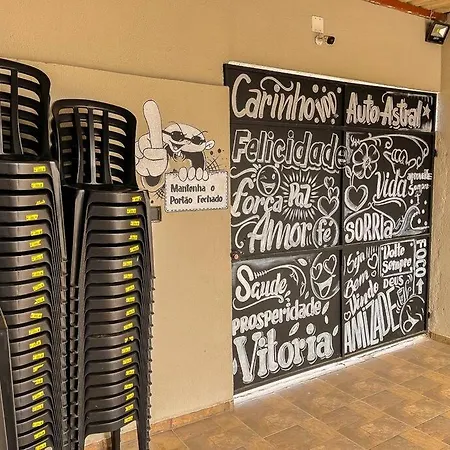 Mantenha o
Portão Fechado
Carinho
Auto-Astral
Felicidade
força
Paz
Amor
fé
Vida
SORRIA
Saude
PROSPERIDADE
Vitoria
Seja
Bem
Vindo
Volte
Sempre
DEUS
AMIZADE
FOCO